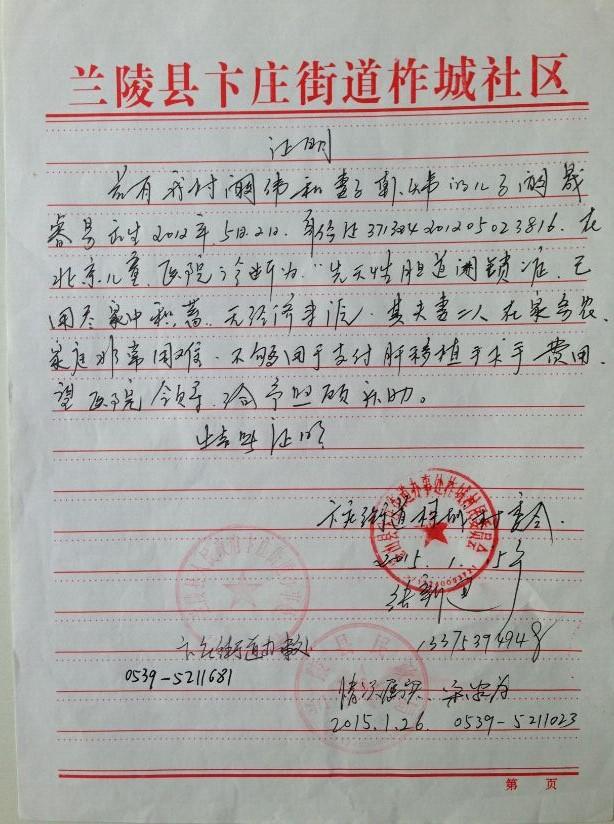 兰陵县卞庄街道柞城社区
证明
兹有我村阚伟和妻子 的儿子阚晟
睿是出生2012年5月2日.身份证371324201205023816.在
北京儿童医院诊断为“先天性胆道闭锁症，已
用尽家中积蓄.无经济来源.其夫妻二人在家务农.
家庭非常困难.不够用于支付肝移植手术手费用.
望医院领导.给予照顾补助。
特此证明
卞庄街道柞城村委会.
2015.1.15号
张新
13375394948
卞庄街道办事处
0539-5211681
情况属实.
2015.1.26. 0539-5211023
第 页